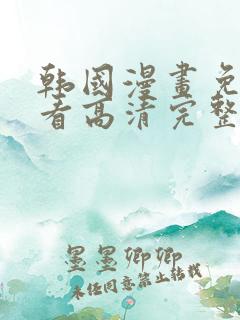 韩國漫畫免
看高清完整
墨墨卿卿
未经同意禁止转载